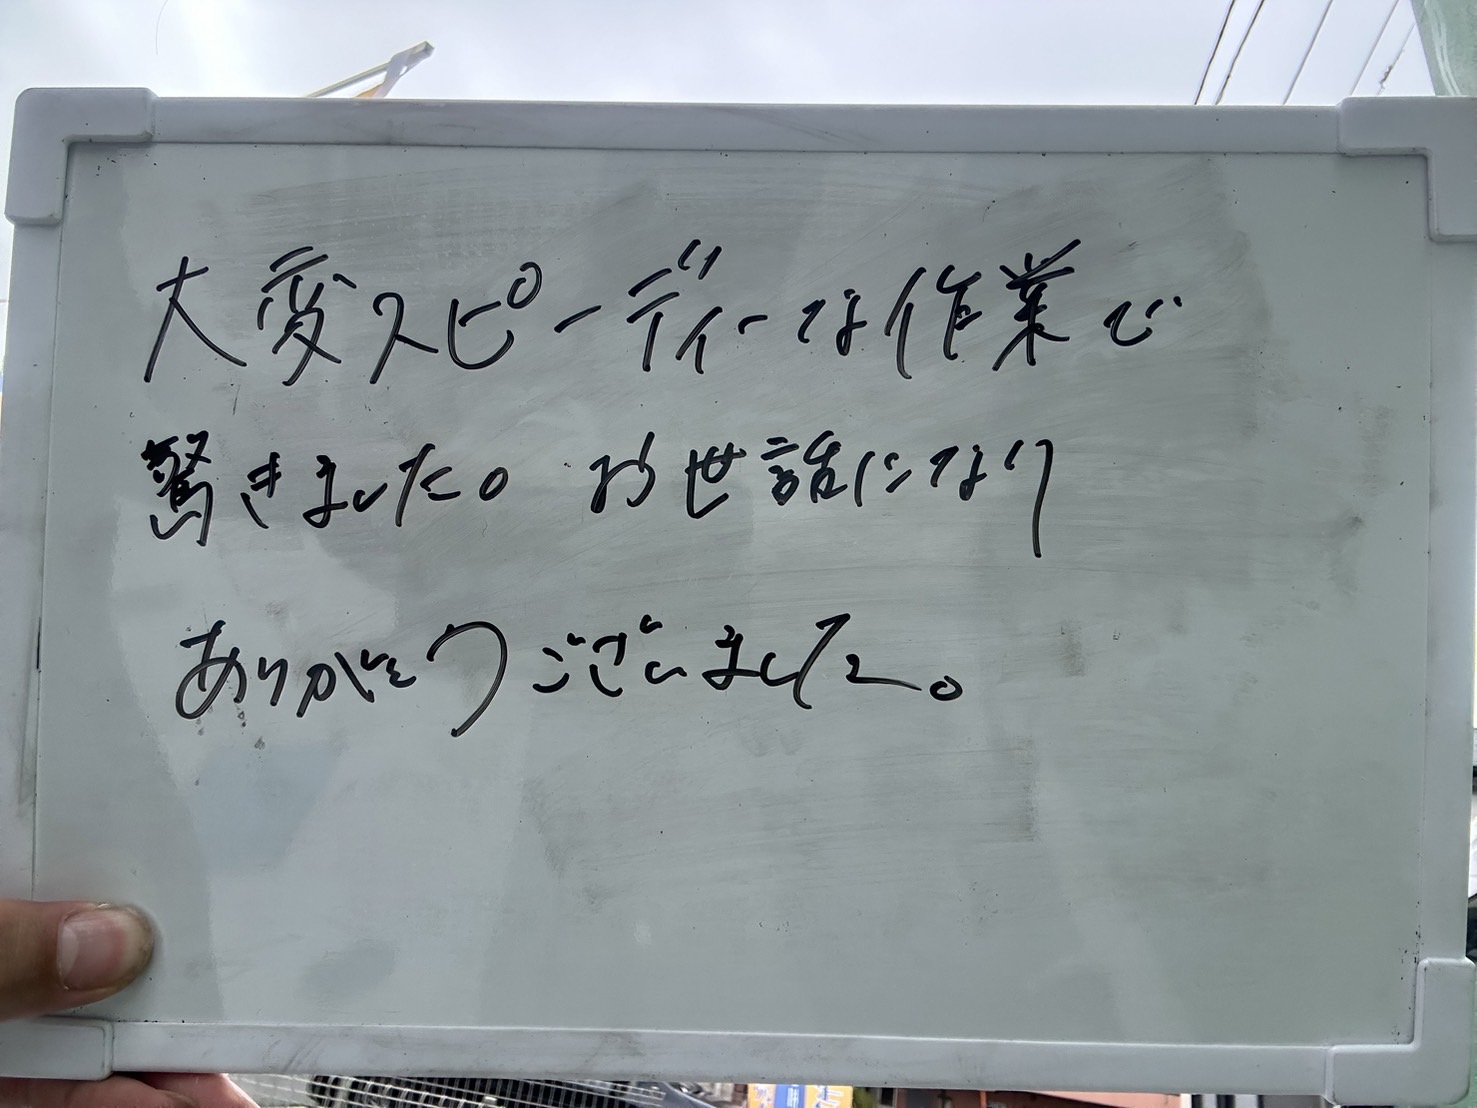 大変スピーディーな作業で
驚きました。お世話になり
ありがとうございました。